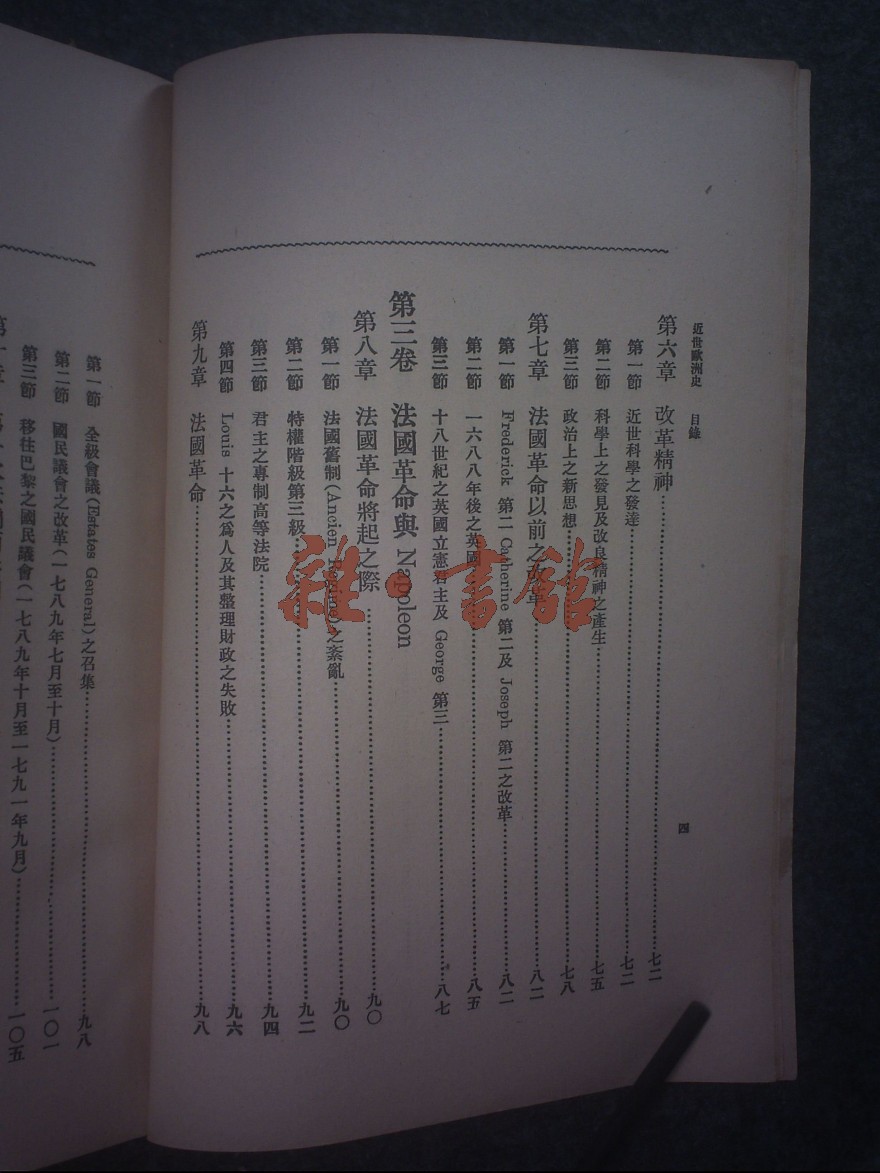 近世歐洲史　目錄
四
第六章　改革精神……七二
第一節　近世科學之發達……七二
第二節　科學上之發見及改良精神之產生……七五
第三節　政治上之新思想……七八
第七章　法國革命以前之改革……八二
第一節　Frederick 第二 Catherine 第二及 Joseph 第二之改革……八二
第二節　一六八八年後之英國……八五
第三節　十八世紀之英國立憲君主及 George 第三……八七
第三卷　法國革命與 Napoleon
第八章　法國革命將起之際……九〇
第一節　法國舊制(Ancien Régime)之紊亂……九〇
第二節　特權階級第三級……九二
第三節　君主之專制高等法院……九四
第四節　Louis 十六之爲人及其整理財政之失敗……九六
第九章　法國革命……九八
第一節　全級會議(Estates General)之召集……九八
第二節　國民議會之改革(一七八九年七月至十月)……一〇一
第三節　移往巴黎之國民議會(一七八九年十月至一七九一年九月)……一〇五
雜·書館